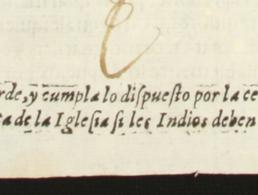 rde, y cumpla lo dispuesto por la ce
ta de la Iglesia si les Indios deben